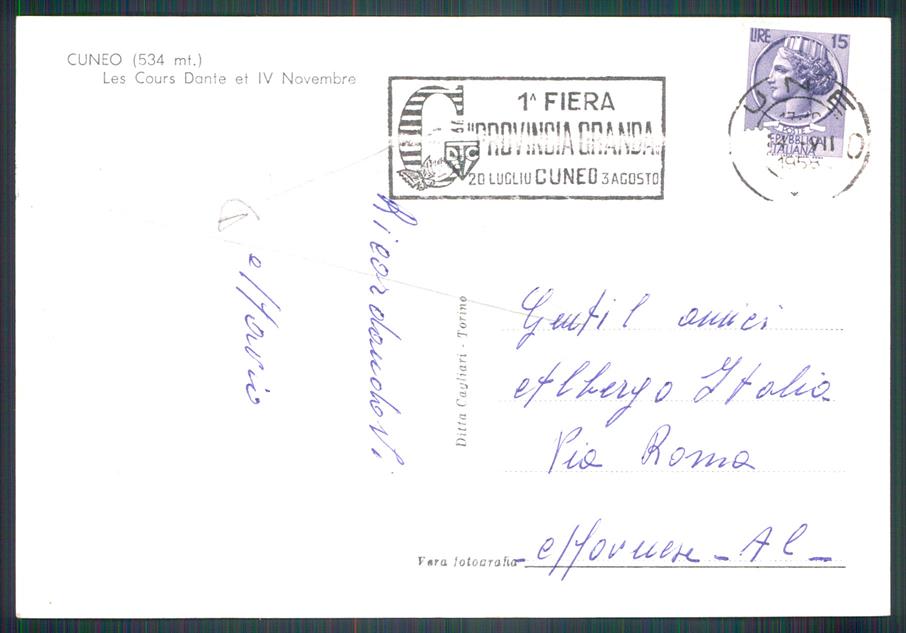 CUNEO (534 mt.)
Les Cours Dante et IV Novembre
1ª FIERA
"PROVINCIA GRANDA"
20 LUGLIO CUNEO 3 AGOSTO
LIRE 15
POSTE
REPUBBLICA
ITALIANA
CUNEO
VII
Ricordandovi
Ditta Cagliari - Torino
Gentil amici
Albergo Italia
Via Roma
Mornese - Al -
Vera fotografia